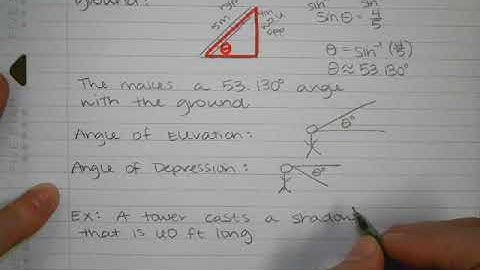 ground:
hyp
5m
4m
opp
θ
sin
sin
sin θ = 4/5
θ = sin⁻¹ (4/5)
θ ≈ 53.130°
The makes a 53.130° angle
with the ground
Angle of Elevation:
θ°
Angle of Depression:
θ°
Ex: A tower casts a shadow
that is 40 ft long